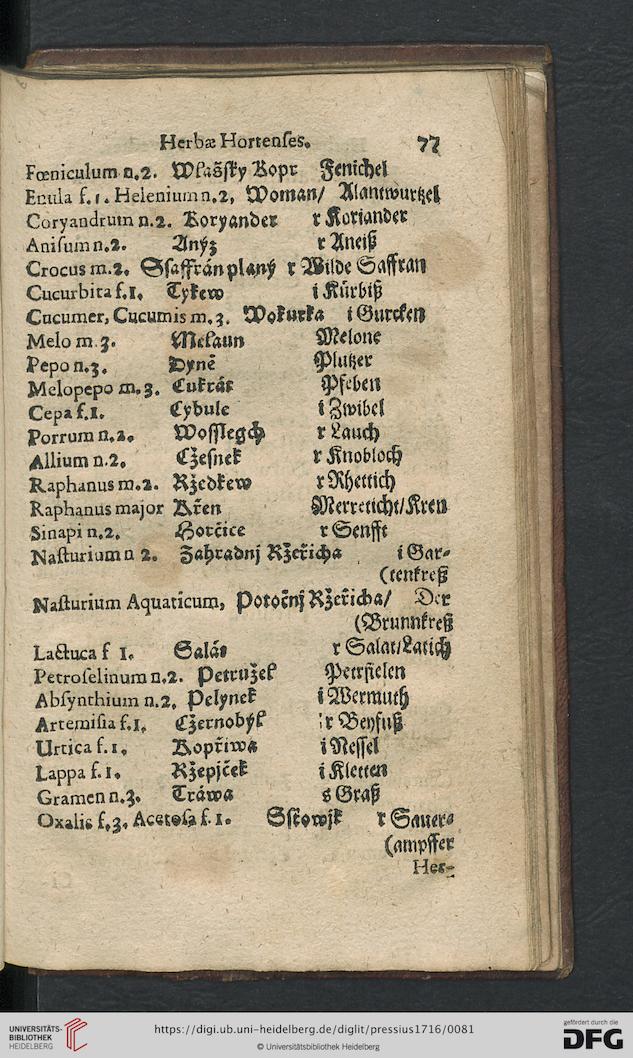 Herbæ Hortenses. 77
Fœniculum n.2. Wlašsky Kopr Fenichel
Enula f.1. Helenium n.2, Woman/ Alantwurtzel
Coryandrum n.2. Koryander r Koriander
Anisum n.2. Anýz r Aneiß
Crocus m.2. Ssaffrán planý r Wilde Saffran
Cucurbita f.1. Tykew i Kürbiß
Cucumer, Cucumis m.3. Wokurka i Gurcken
Melo m.3. Melaun Melone
Pepo n.3. Dyně Plutzer
Melopepo m.3. Cukrát Pfeben
Cepa f.1. Cybule i Zwibel
Porrum n.2. Wosslegch r Lauch
Allium n.2. Cžesnek r Knobloch
Raphanus m.2. Ržedkew r Rhettich
Raphanus major Křen Merreticht/Kren
Sinapi n.2. Horčice r Senfft
Nasturium n 2. Zahradnj Ržeřicha i Gar-
(tenkreß
Nasturium Aquaticum, Potočnj Ržeřicha/ Der
(Brunnkreß
Lactuca f 1. Salát r Salat/Latich
Petroselinum n.2. Petružel Petersielen
Absynthium n.2. Pelynek i Wermuth
Artemisia f.1. Cžernobýl r Beyfuß
Urtica f.1. Kopřiwa i Nessel
Lappa f.1. Ržepjček i Kletten
Gramen n.3. Tráwa s Graß
Oxalis f.3. Acetosa f.1. Sstowjk r Sauer-
(ampffer
Her-
UNIVERSITÄTS-
BIBLIOTHEK
HEIDELBERG
https://digi.ub.uni-heidelberg.de/diglit/pressius1716/0081
© Universitätsbibliothek Heidelberg
gefördert durch die
DFG